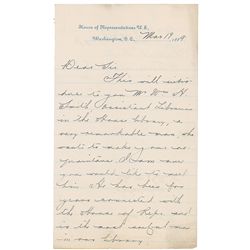 House of Representatives U.S.
Washington, D.C. Mar 19, 188
Dear Sir
This will intro
duce to you Mr Wm H
Smith Assistant Librarian
in the House Library, a
very remarkable man, who
wants to make your ac
quaintance. I am sure
you would like to meet
him. He has been for
years connected with
the House of Reps. and
is the most useful man
in our Library